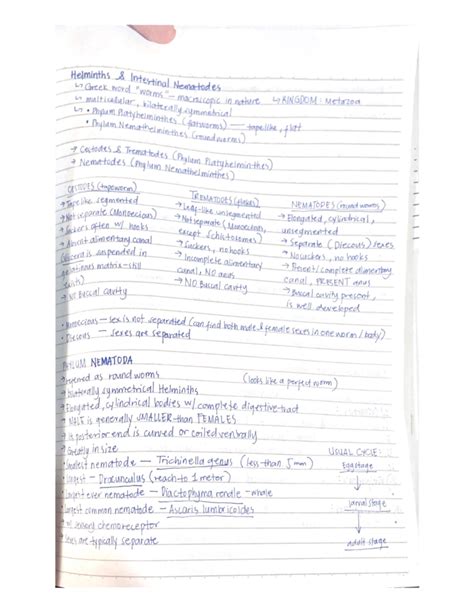 Helminths & Intestinal Nematodes
↳ Greek word "worms" - macroscopic in nature ↳ KINGDOM: Metazoa
↳ multicellular, bilaterally symmetrical
↳ • Phylum Platyhelminthes (flatworms) — tapelike, flat
• Phylum Nemathelminthes (roundworms)
→ Cestodes & Trematodes (Phylum Platyhelminthes)
→ Nematodes (Phylum Nemathelminthes)
CESTODES (tapeworm)
→ Tapelike, segmented
→ Not separate (Monoecian)
→ Suckers often w/ hooks
→ Absent alimentary canal
(viscera is suspended in
gelatinous matrix-still
exists)
→ NO Buccal cavity
TREMATODES (flukes)
→ Leaf-like unsegmented
→ Not separate (Monoecian,
except Schistosomes)
→ Suckers, no hooks
→ Incomplete alimentary
canal, NO anus
→ NO Buccal cavity
NEMATODES (round worms)
→ Elongated, cylindrical,
unsegmented
→ Separate (Diecous) sexes
→ No suckers, no hooks
→ Present/complete alimentary
canal, PRESENT anus
→ Buccal cavity present,
is well developed
• Monoecious - sex is not separated (can find both male & female sexes in one worm/body)
• Diecous - sexes are separated
PHYLUM NEMATODA
→ referred as roundworms (looks like a perfect worm)
→ bilaterally symmetrical Helminths
→ Elongated, cylindrical bodies w/ complete digestive tract
→ MALE is generally SMALLER than FEMALES
→ its posterior end is curved or coiled ventrally
→ Greatly in size
→ smallest nematode — Trichinella genus (less than 5mm)
→ Longest - Dracunculus (reach to 1 meter)
→ Largest ever nematode - Dioctaphyma renale - whale
→ Largest common nematode - Ascaris lumbricoides
→ w/ sensory chemoreceptor
→ Sexes are typically separate
USUAL CYCLE:
Egg stage
↓
larval stage
↓
adult stage